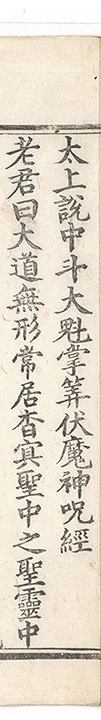 太上說中斗大魁掌筭伏魔神呪經
老君曰大道無形常居杳㝠聖中之聖靈中